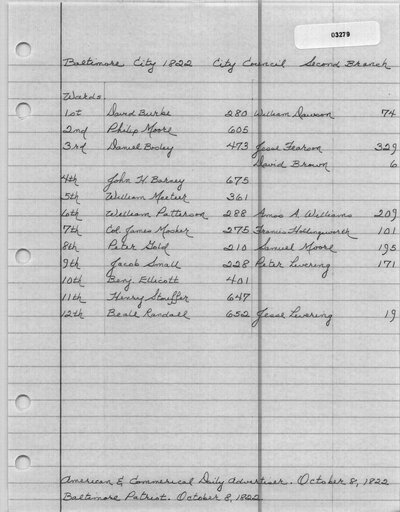 03279
Baltimore City 1822 City Council Second Branch
Wards.
1st David Burke 280 William Dawson 74
2nd Philip Moore 605
3rd Daniel Bosley 473 Jesse Fearson 329
David Brown 6
4th John H. Barney 675
5th William Meeteer 361
6th William Patterson 288 Amos A. Williams 209
7th Col. James Mosher 275 Francis Hollingsworth 101
8th Peter Gold 210 Samuel Moore 195
9th Jacob Small 228 Peter Levering 171
10th Benj. Ellicott 401
11th Henry Stouffer 647
12th Beale Randall 652 Jesse Levering 19
American & Commercial Daily Advertiser. October 8, 1822
Baltimore Patriot. October 8, 1822